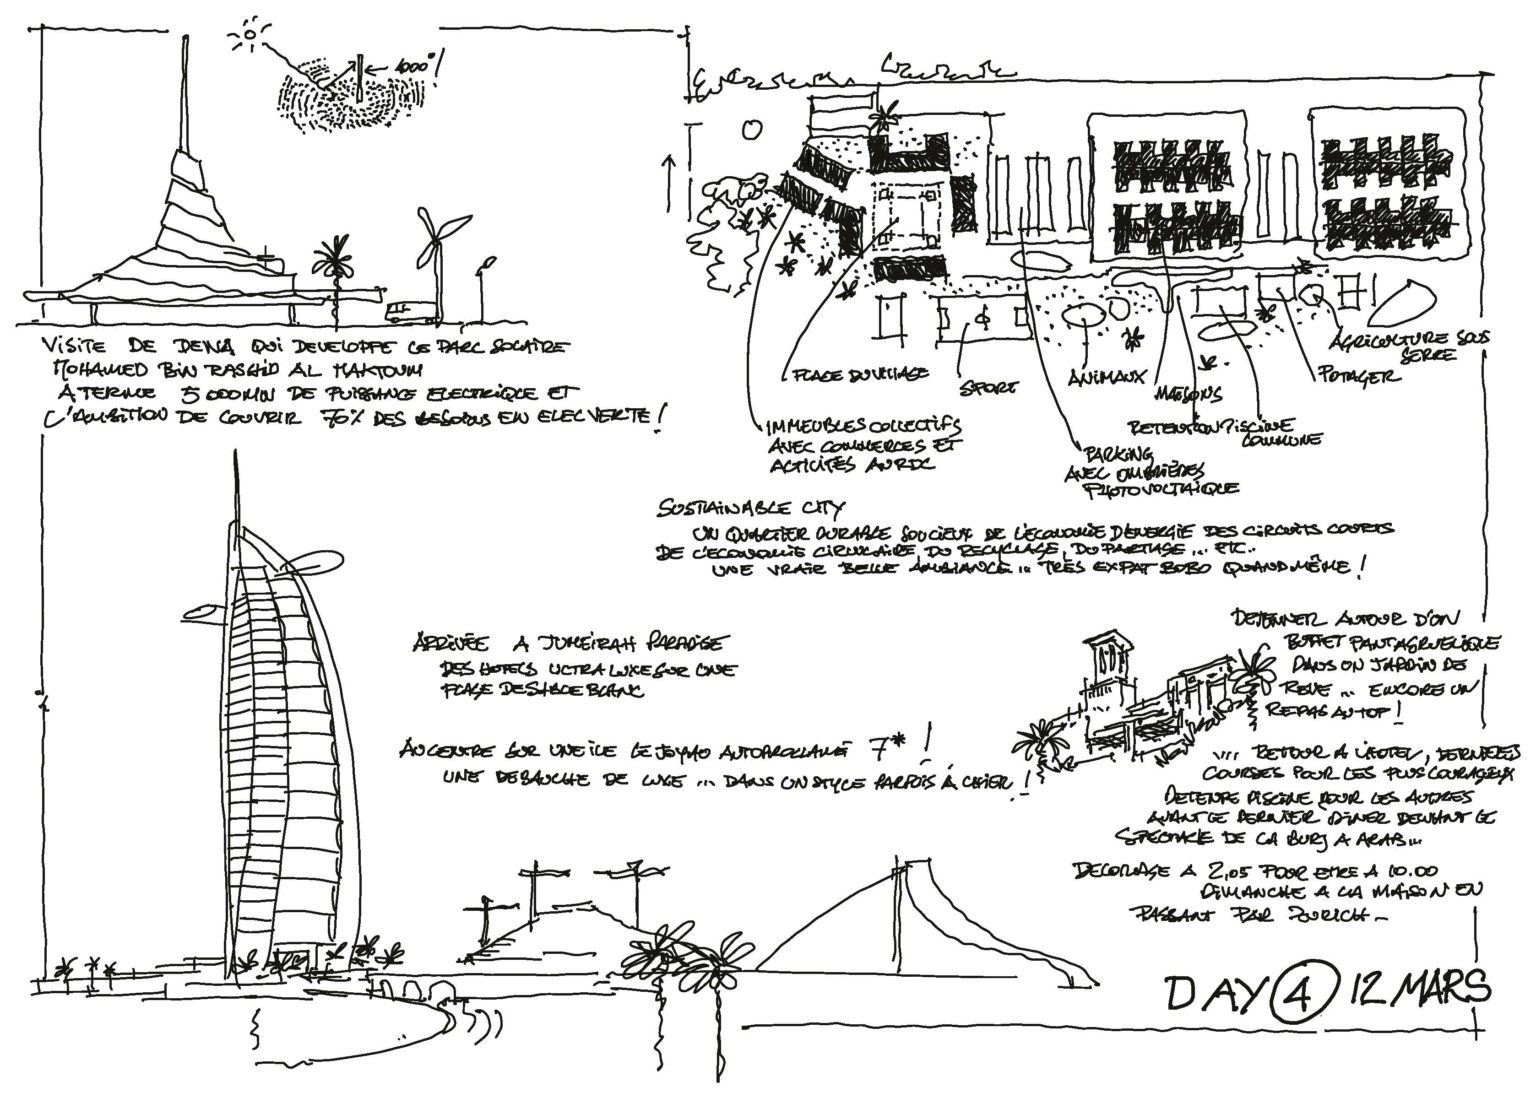 1000°!
VISITE DE DEWA QUI DEVELOPPE LE PARC SOLAIRE
MOHAMED BIN RASHID AL MAKTOUM
A TERME 5 000 MW DE PUISSANCE ELECTRIQUE ET
L'AMBITION DE COUVRIR 70% DES BESOINS EN ELEC VERTE !
PLACE DU VILLAGE
SPORT
ANIMAUX
MAISONS
POTAGER
AGRICULTURE SOUS
SERRE
IMMEUBLES COLLECTIFS
AVEC COMMERCES ET
ACTICITÉS AU RDC
RETENTION PISCINE
COMMUNE
PARKING
AVEC OMBRIÈRES
PHOTOVOLTAIQUE
SUSTAINABLE CITY
UN QUARTIER DURABLE SOUCIEUX DE L'ÉCONOMIE D'ENERGIE DES CIRCUITS COURTS
DE L'ECONOMIE CIRCULAIRE, DU RECYCLAGE, DU PARTAGE... ETC..
UNE VRAIE BELLE AMBIANCE... TRÈS EXPAT BOBO QUAND MÊME !
ARRIVÉE A JUMEIRAH PARADISE
DES HOTELS ULTRA LUXE SUR UNE
PLAGE DE SABLE BLANC
AU CENTRE SUR UNE ILE LE JOYAU AUTOPROCLAMÉ 7* !
UNE DEBAUCHE DE LUXE ... DANS UN STYLE PARFOIS À CHIER !
DEJEUNER AUTOUR D'UN
BUFFET PANTAGRUELIQUE
DANS UN JARDIN DE
REVE ... ENCORE UN
REPAS AU TOP !
.... RETOUR A L'HOTEL, DERNIERES
COURSES POUR LES PLUS COURAGEUX
DETENTE PISCINE POUR LES AUTRES
AVANT LE DERNIER DINER DEVANT LE
SPECTACLE DE LA BURJ A ARAB...
DECOLLAGE A 2,05 POUR ETRE A 10.00
DIMANCHE A LA MAISON EN
PASSANT PAR ZURICH...
DAY 4 12 MARS